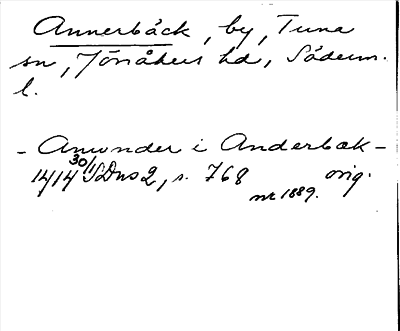 Annerbäck, by, Tuna
sn, Jönåkers hd, Söderm.
l.
- Anwnder i Anderbæk -
1414 30/1 SDns 2, s. 768 orig.
nr 1889.